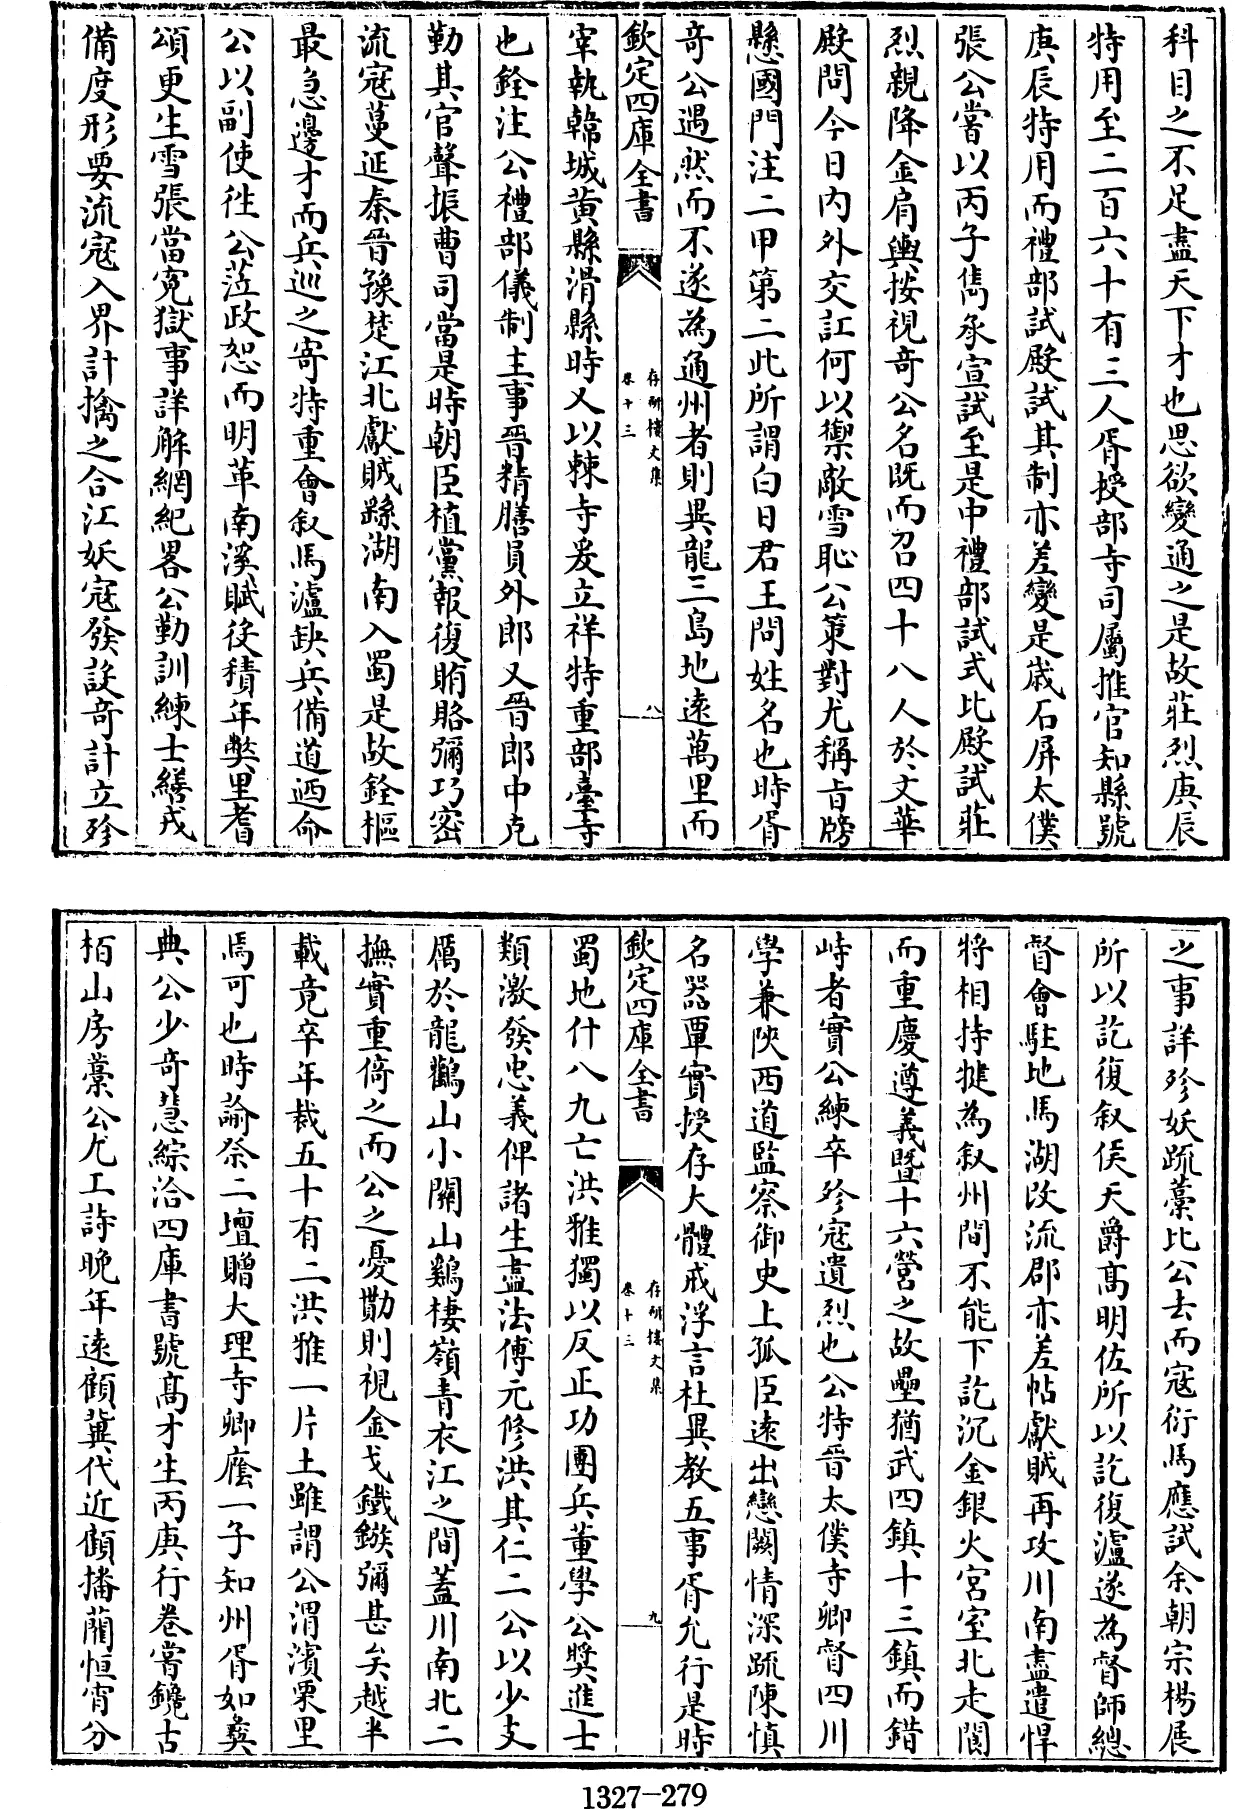 科目之不足盡天下才也思欲變通之是故莊烈庚辰
特用至二百六十有三人胥授部寺司屬推官知縣號
庚辰特用而禮部試殿試其制亦差變是歲石屏太僕
張公嘗以丙子雋承宣試至是中禮部試式比殿試莊
烈親降金肩輿按視奇公名既而召四十八人於文華
殿問今日内外交訌何以禦敵雪恥公策對尤稱旨牓
懸國門注二甲第二此所謂白日君王問姓名也時胥
奇公遇然而不遂為通州者則異龍三島地遠萬里而
欽定四庫全書
存研樓文集
卷十三
八
宰執韓城黄縣滑縣時又以棘寺爰立祥特重部臺寺
也銓注公禮部儀制主事晉精膳員外郎又晉郎中克
勤其官聲振曹司當是時朝臣植黨報復賄賂彌巧密
流寇蔓延秦晉豫楚江北獻賊繇湖南入蜀是故銓樞
最急邊才而兵巡之寄特重會叙馬瀘缺兵備道迺命
公以副使徃公蒞政恕而明革南溪賦役積年弊里耆
頌更生雪張當寃獄事詳解網紀畧公勤訓練士繕戎
備度形要流寇入界計擒之合江妖寇發設奇計立殄
之事詳殄妖疏藁比公去而寇衍馬應試余朝宗楊展
所以訖復叙侯天爵髙明佐所以訖復瀘遂為督師總
督會駐地馬湖改流郡亦差帖獻賊再攻川南盡遣悍
將相持犍為叙州間不能下訖沉金銀火宮室北走閬
而重慶遵義暨十六營之故壘猶武四鎮十三鎮而錯
峙者實公練卒殄寇遺烈也公特晉太僕寺卿督四川
學兼陜西道監察御史上孤臣遠出戀闕情深疏陳慎
名器覃實授存大體戒浮言杜異教五事胥允行是時
欽定四庫全書
存研樓文集
卷十三
九
蜀地什八九亡洪雅獨以反正功團兵董學公奬進士
類激發忠義俾諸生盡法傅元修洪其仁二公以少支
厲於龍鸛山小關山鷄棲嶺青衣江之間蓋川南北二
撫實重倚之而公之憂勩則視金戈鐵鏃彌甚矣越半
載竟卒年裁五十有二洪雅一片土雖謂公渭濱栗里
焉可也時諭祭二壇贈大理寺卿廕一子知州胥如彛
典公少奇慧綜洽四庫書號髙才生丙庚行卷嘗鑱古
栢山房藁公尤工詩晚年遠顧冀代近傾播藺恒宵分
1327-279